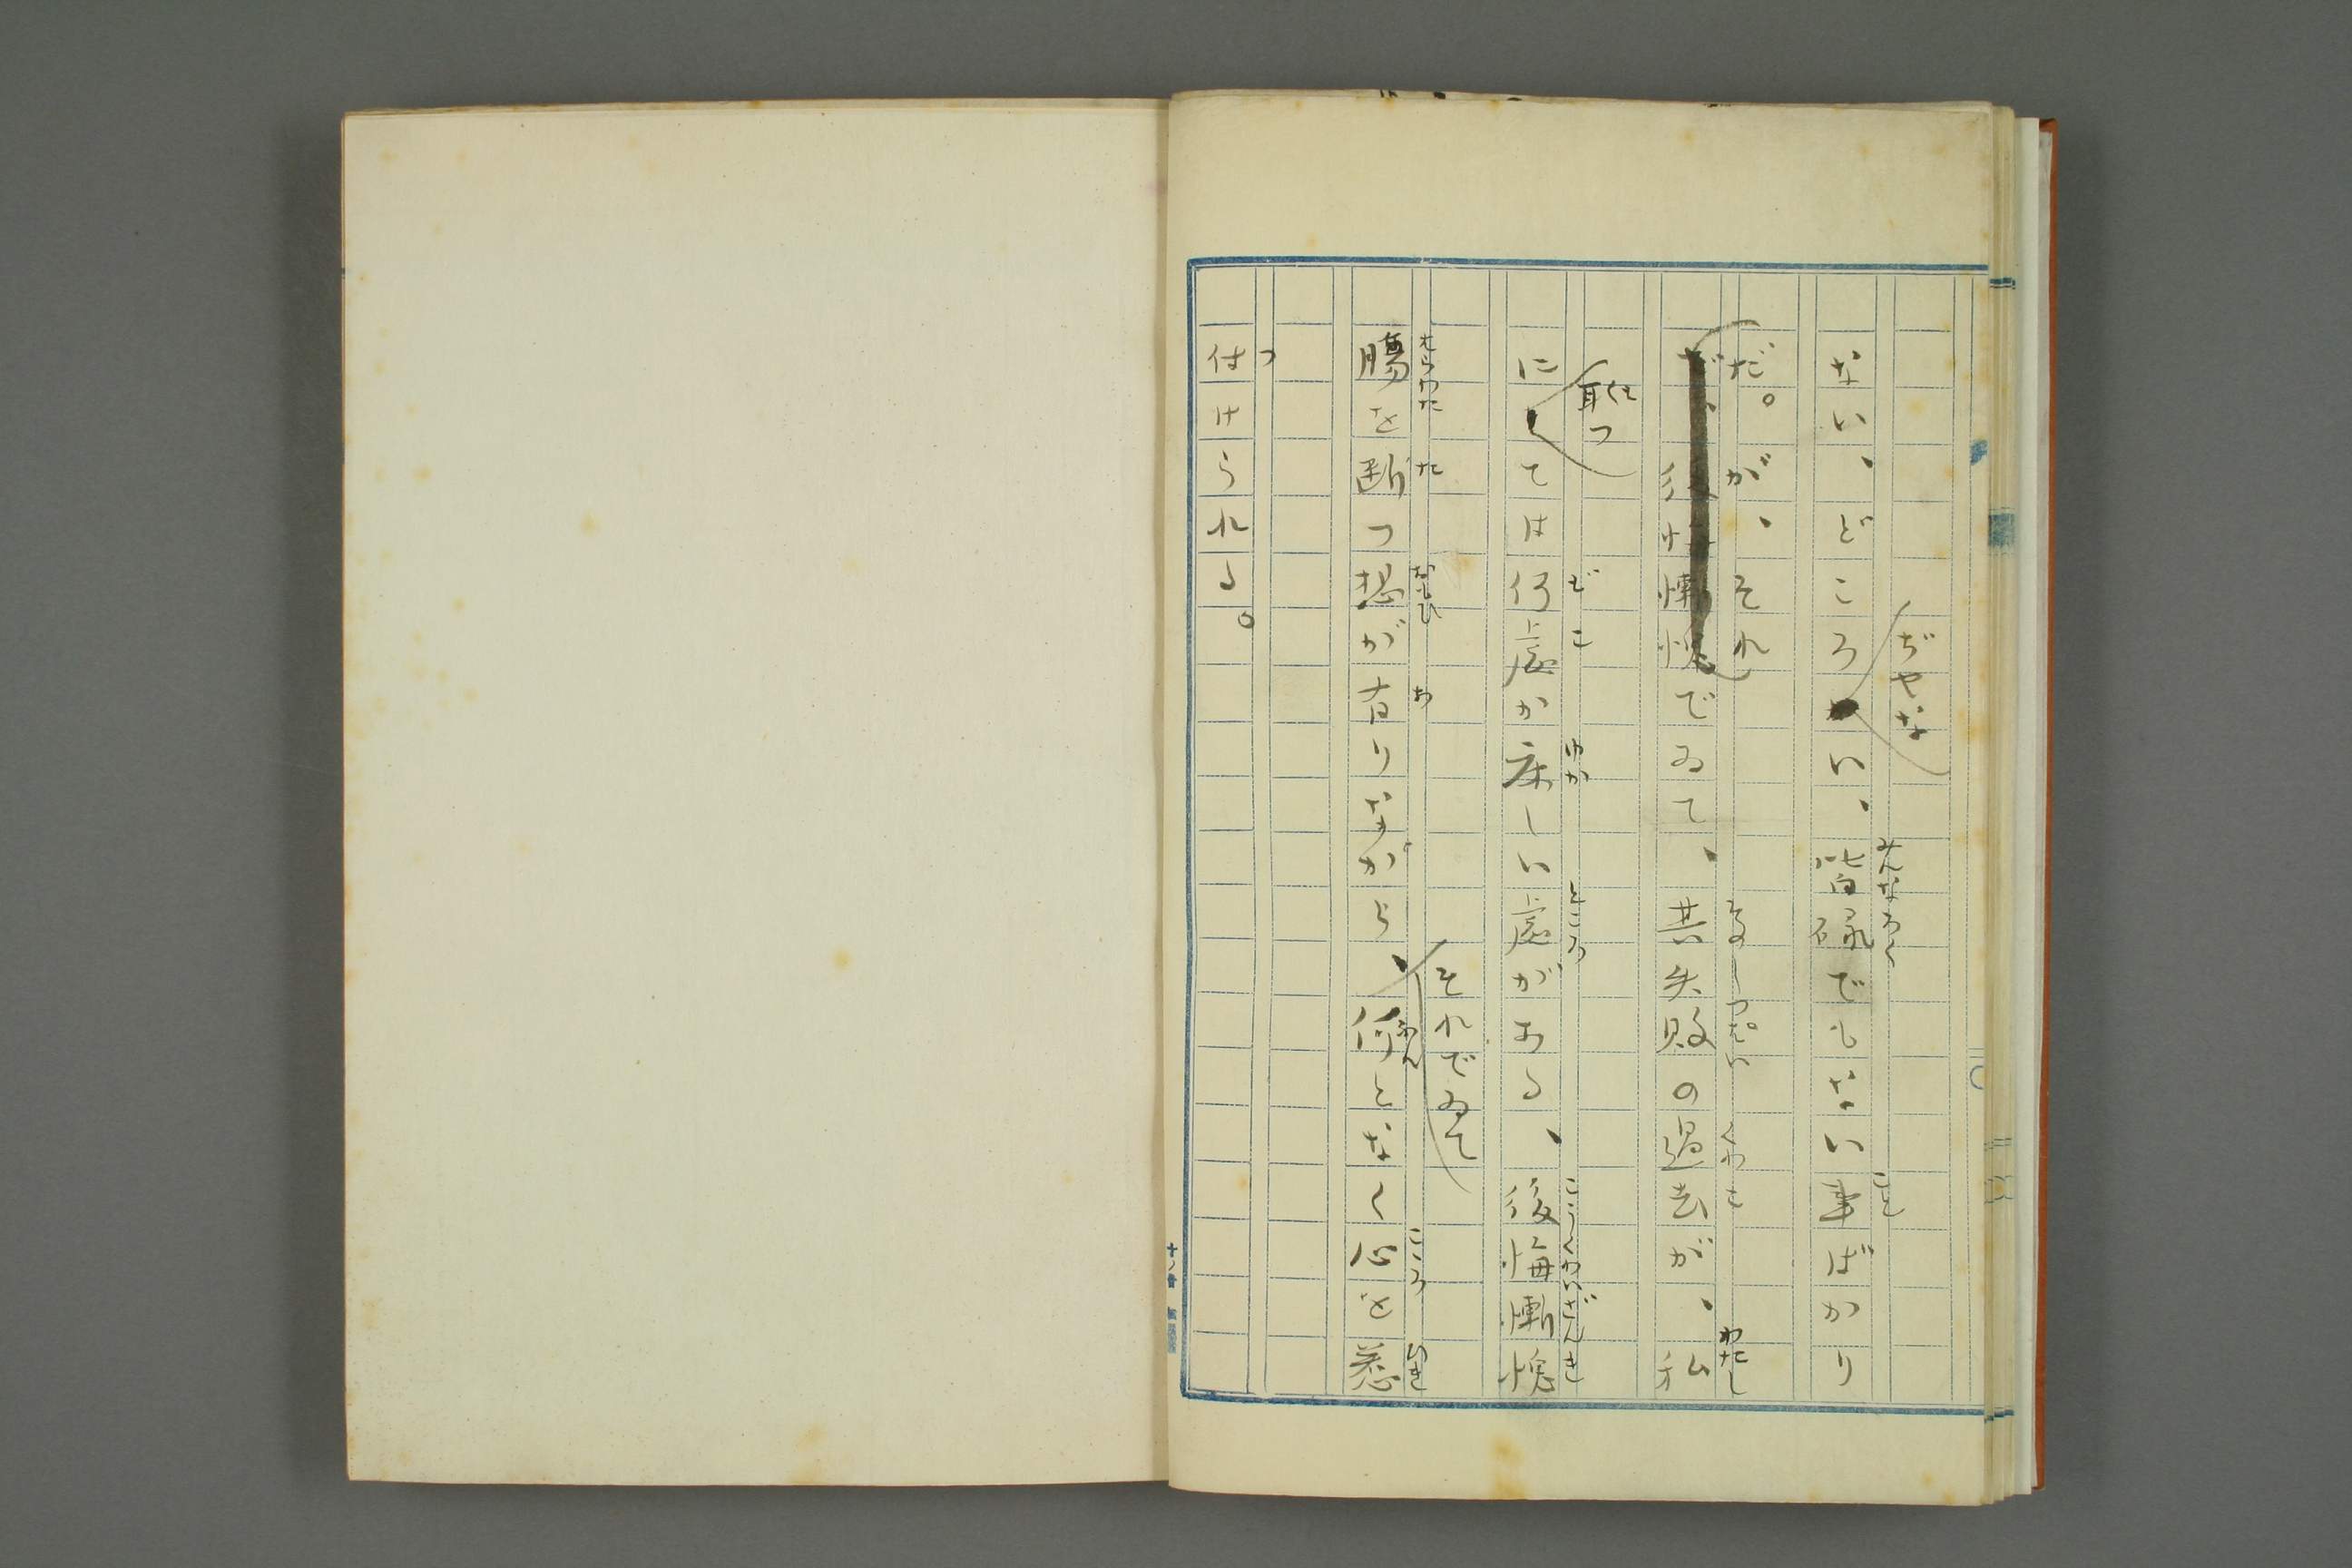 ぢやな
ない、どころい、皆碌でもない事ばかり
みんなろく
こと
だ。が、それ
でゐて、其失敗の過去が、私
そのしつぱい
くわこ
わたし
取つ
にては何處か床しい處がある、後悔慚愧
どこ
ゆか
ところ
こうくわいざんき
それでゐて
腸を断つ想が有りながら、何となく心を惹
はらわた
た
おもひ
あ
なん
こころ
ひき
付けられる。
つ